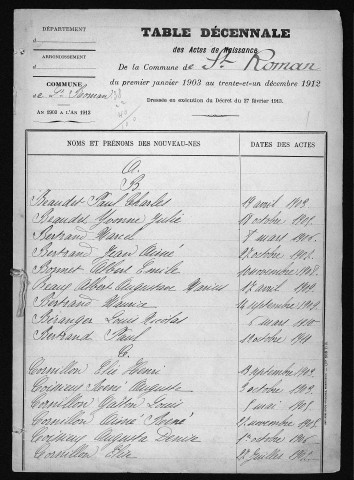 DÉPARTEMENT
ARRONDISSEMENT
COMMUNE
de St Roman
AN 1903 A L'AN 1912
TABLE DÉCENNALE
des Actes de Naissance
De la Commune de St Roman
du premier janvier 1903 au trente-et-un décembre 1912
Dressée en exécution du Décret du 17 février 1915.
NOMS ET PRÉNOMS DES NOUVEAU-NÉS DATES DES ACTES
A.
B
Beaudet Paul Charles 19 avril 1903.
Beaudet Yvonne Julie 18 octobre
Bertrand Marcel 8 mars 1906.
Bertrand Jean Aimé 27 octobre
Bonnet Albert Emile 10 novembre 1908.
Albert Augustave Marius avril 1909.
Bertrand Maurice 14 septembre 1909.
Béranger Louis Nicolas 5 mars 1910
Bertrand Paul octobre 1911.
C.
Cornillon Elie Henri septembre 1903.
René Auguste octobre 1903.
Cornillon Gaston Louis 8 mai
Cornillon Aimé René novembre
Augusta Denise octobre
Cornillon Elie 22 juillet